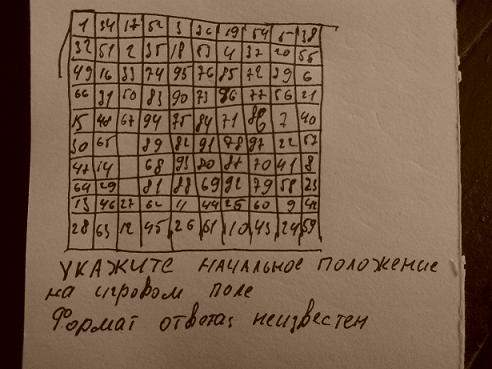 1 34 17 52 3 36 19 54 5 38
32 51 2 35 18 53 4 37 20 55
49 16 33 74 95 76 85 72 39 6
66 31 50 83 90 73 96 77 56 21
15 48 67 94 75 84 71 86 7 40
30 65 89 82 91 78 97 22 57
47 14 68 93 80 87 70 41 8
64 29 81 88 69 92 79 58 23
13 46 27 62 11 44 25 60 9 42
28 63 12 45 26 61 10 43 24 59
УКАЖИТЕ начальное положение
на игровом поле
Формат ответа: неизвестен